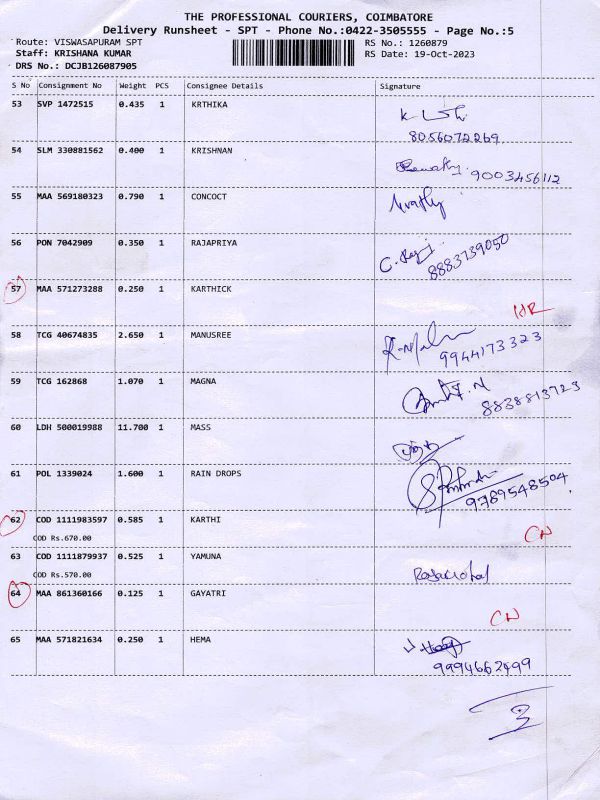 THE PROFESSIONAL COURIERS, COIMBATORE
Delivery Runsheet - SPT - Phone No.:0422-3505555 - Page No.:5
Route: VISWASAPURAM SPT
RS No.: 1260879
Staff: KRISHANA KUMAR
RS Date: 19-Oct-2023
DRS No.: DCJB126087905
S No Consignment No Weight PCS Consignee Details Signature
53 SVP 1472515 0.435 1 KRTHIKA
8056072269
54 SLM 330881562 0.400 1 KRISHNAN
9003456112
55 MAA 569180323 0.790 1 CONCOCT
56 PON 7042909 0.350 1 RAJAPRIYA
8883739050
57 MAA 571273288 0.250 1 KARTHICK
HR
58 TCG 40674835 2.650 1 MANUSREE
9944173323
59 TCG 162868 1.070 1 MAGNA
8838813723
60 LDH 500019988 11.700 1 MASS
61 POL 1339024 1.600 1 RAIN DROPS
9789548504
62 COD 1111983597 0.585 1 KARTHI
COD Rs.670.00
CN
63 COD 1111879937 0.525 1 YAMUNA
COD Rs.570.00
64 MAA 861360166 0.125 1 GAYATRI
CN
65 MAA 571821634 0.250 1 HEMA
9994662499